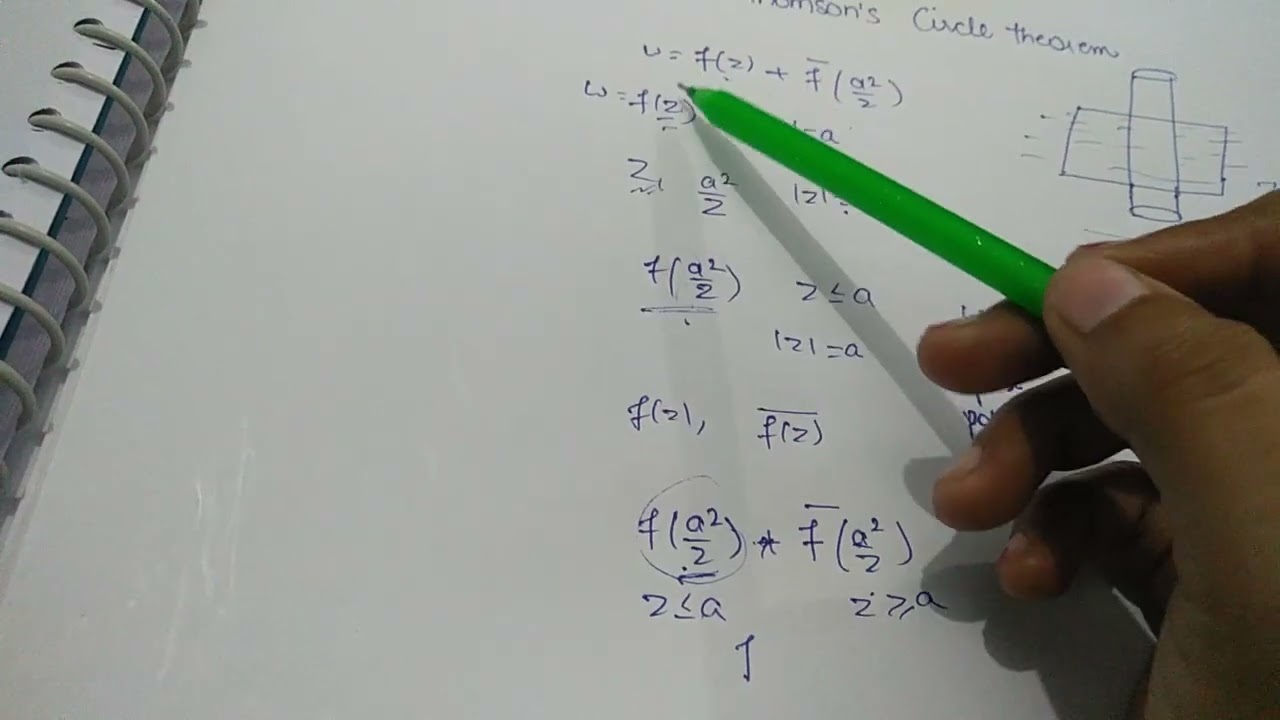 Thomson's Circle theorem
w = f(z) + f̅(a²/z)
w = f(z)
= a
z a²/z |z| =
f(a²/z) z ≤ a
|z| = a
f(z), \overline{f(z)}
f(a²/z) * f̅(a²/z)
z ≤ a z ≥ a